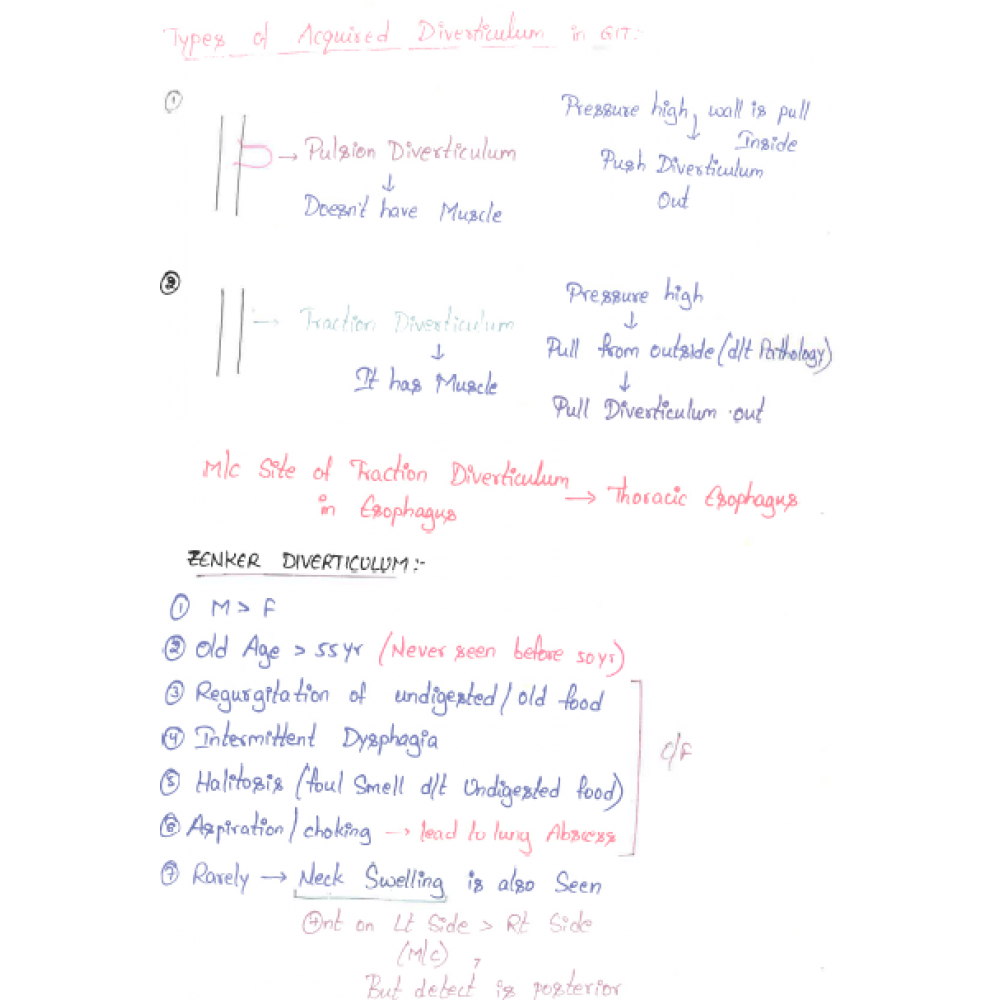 Types of Acquired Diverticulum in GIT:-
①
Pressure high, wall is pull
Inside
→ Pulsion Diverticulum
↓
Push Diverticulum
Out
↓
Doesn't have Muscle
②
Pressure high
↓
→ Traction Diverticulum
Pull from outside (d/t Pathology)
↓
↓
It has Muscle
Pull Diverticulum out
M/c Site of Traction Diverticulum
in Esophagus → Thoracic Esophagus
ZENKER DIVERTICULUM:-
① M > F
② Old Age > 55yr (Never seen before 50yr)
③ Regurgitation of undigested/old food
④ Intermittent Dysphagia
C/F
⑤ Halitosis (foul Smell d/t Undigested food)
⑥ Aspiration/choking → lead to lung Abscess
⑦ Rarely → Neck Swelling is also Seen
⊕nt on Lt Side > Rt Side
(M/C) ,
But detect is posterior